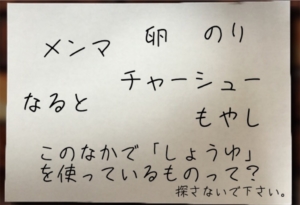 メンマ 卵 のり
チャーシュー
なると
もやし
このなかで「しょうゆ」
を使っているものって?
探さないで下さい。